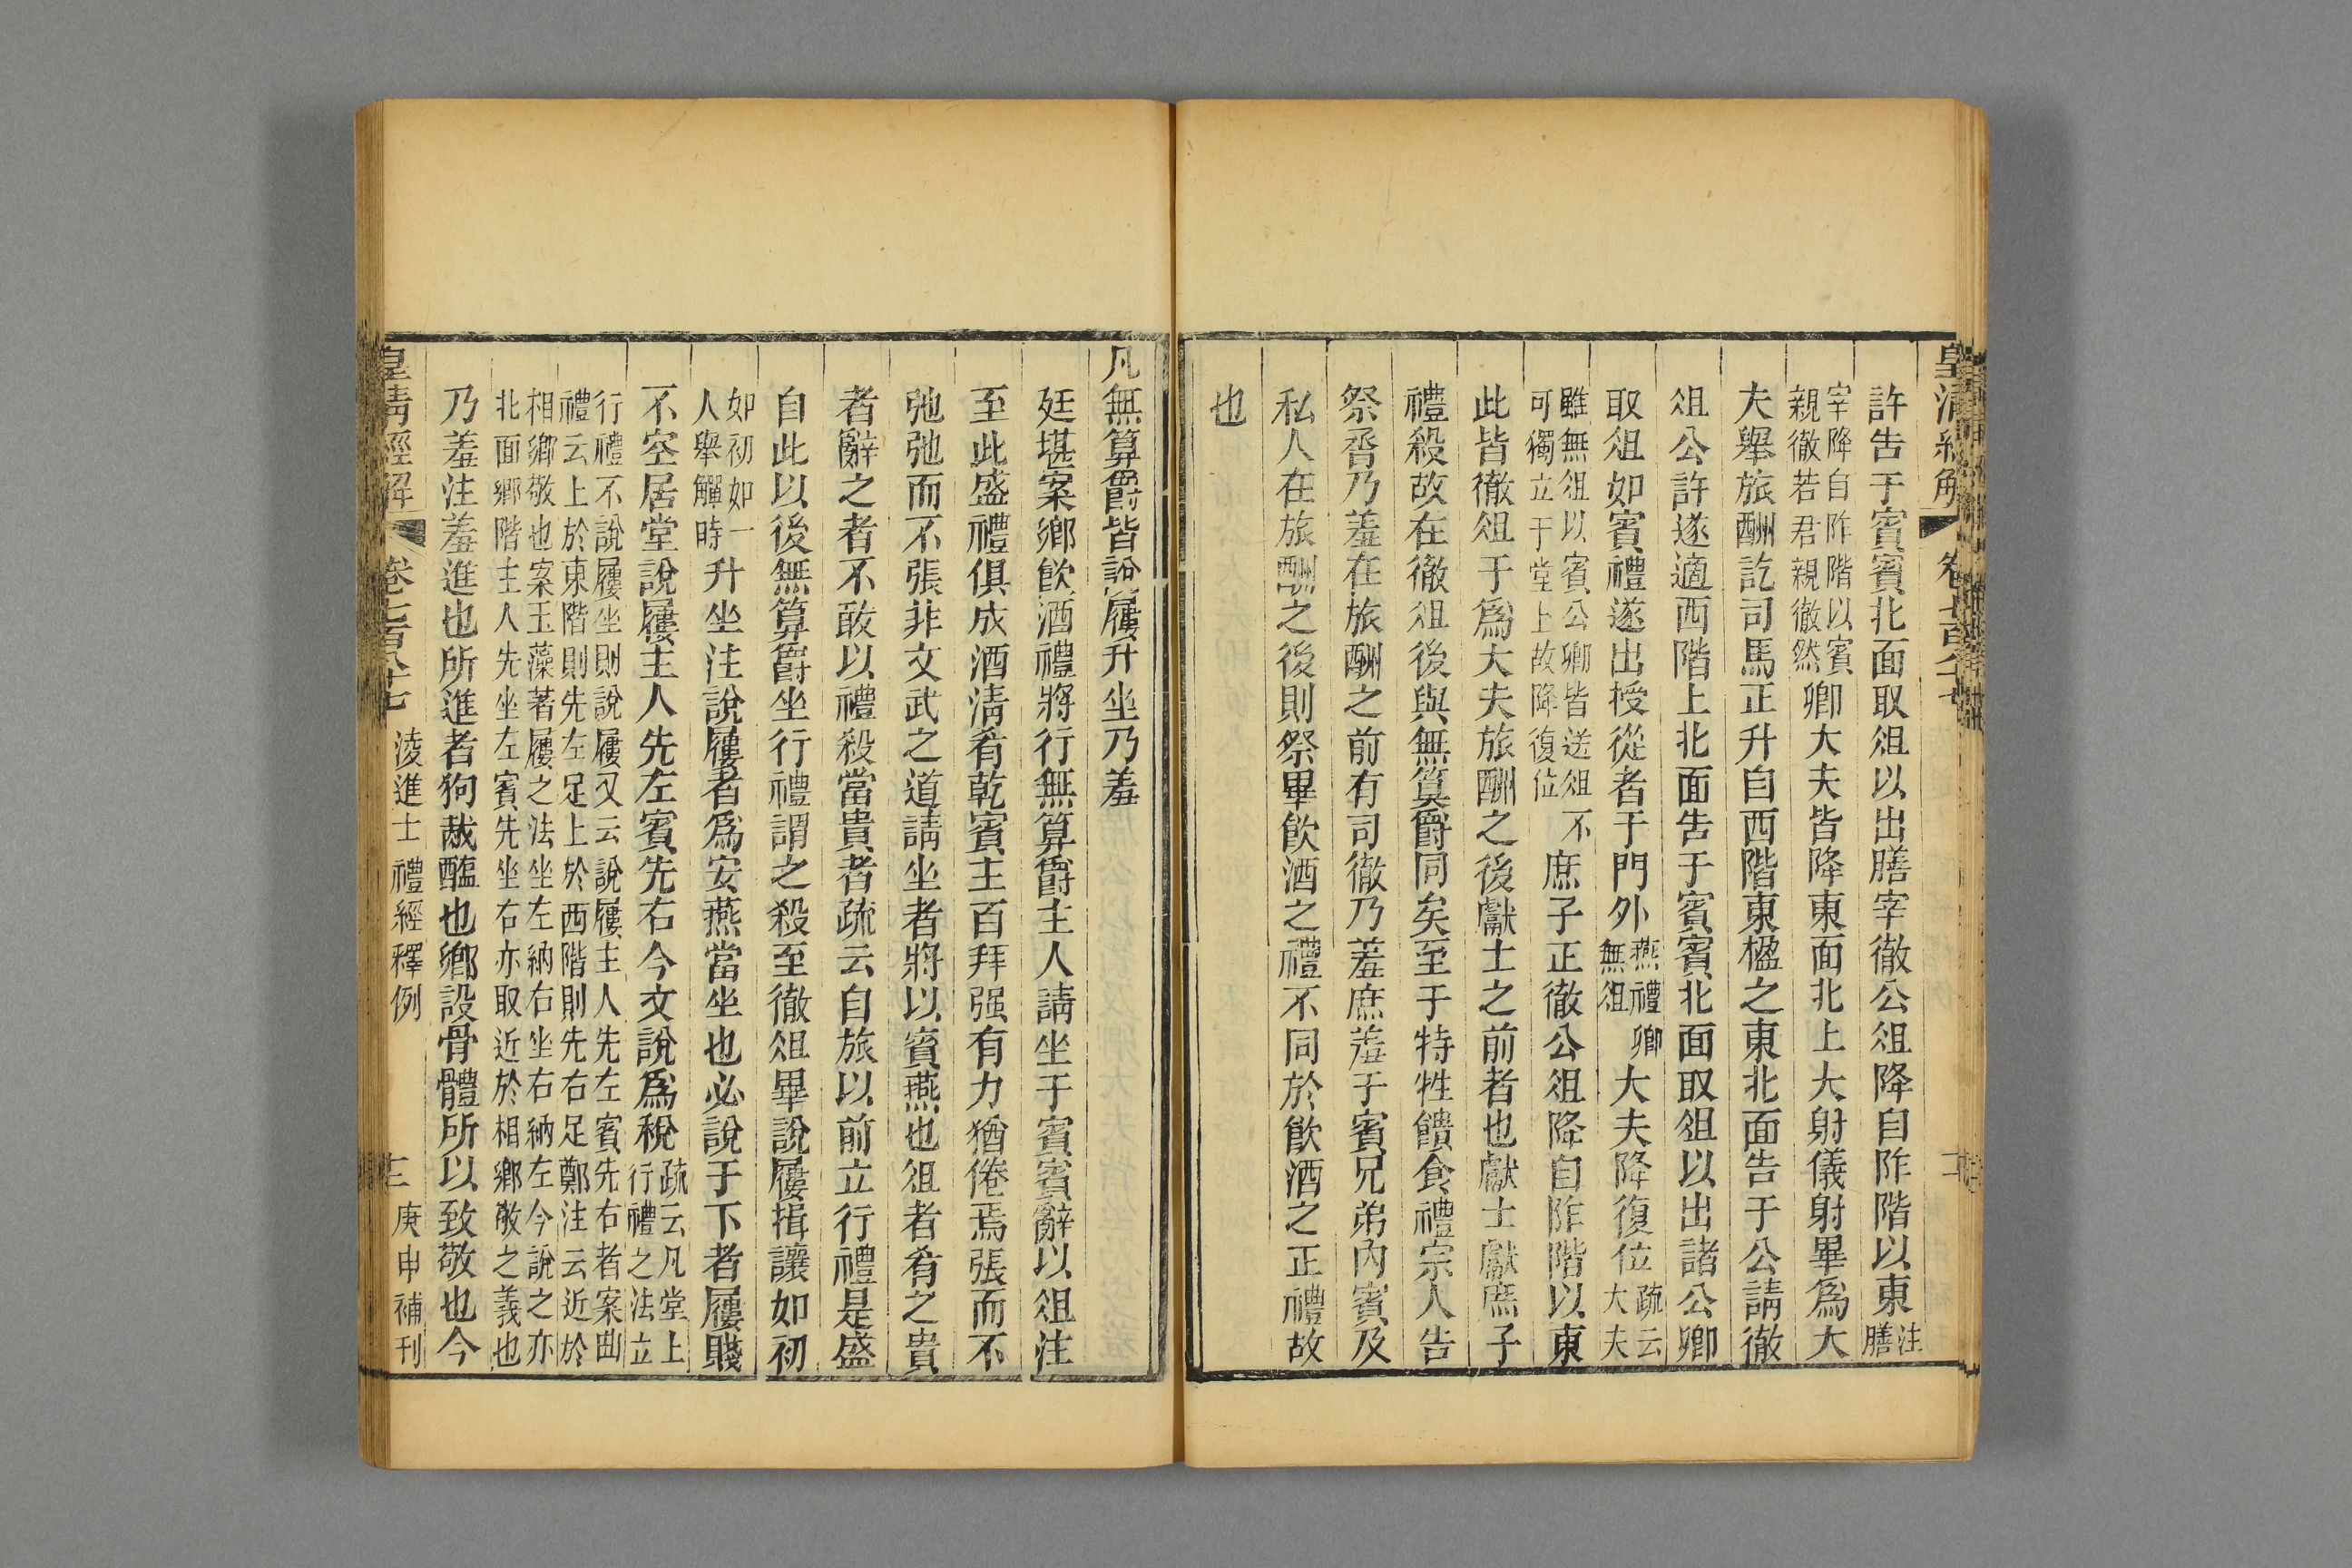 皇清經解 卷七百八十七
許告于賓賓北面取俎以出膳宰徹公俎降自阼階以東注膳
宰降自阼階以賓親徹若君親徹然卿大夫皆降東面北上大射儀射畢爲大
夫舉旅酬訖司馬正升自西階東楹之東北面告于公請徹
俎公許遂適西階上北面告于賓賓北面取俎以出諸公卿
取俎如賓禮遂出授從者于門外燕禮卿無俎大夫降復位疏云大夫
雖無俎以賓公卿皆送俎不可獨立于堂上故降復位庶子正徹公俎降自阼階以東
此皆徹俎于爲大夫旅酬之後獻士之前者也獻士獻庶子
禮殺故在徹俎後與無算爵同矣至于特牲饋食禮宗人告
祭脀乃羞在旅酬之前有司徹乃羞庶羞于賓兄弟內賓及
私人在旅酬之後則祭畢飲酒之禮不同於飲酒之正禮故
也
凡無算爵皆說屨升坐乃羞
廷堪案鄉飲酒禮將行無算爵主人請坐于賓賓辭以俎注
至此盛禮俱成酒淸肴乾賓主百拜强有力猶倦焉張而不
弛弛而不張非文武之道請坐者將以賓燕也俎者肴之貴
者辭之者不敢以禮殺當貴者疏云自旅以前立行禮是盛
自此以後無算爵坐行禮謂之殺至徹俎畢說屨揖讓如初
如初如一人舉觶時升坐注說屨者爲安燕當坐也必說于下者屨賤
不空居堂說屨主人先左賓先右今文說爲稅疏云凡堂上行禮之法立
行禮不說屨坐則說屨又云說屨主人先左賓先右者案曲
禮云上於東階則先左足上於西階則先右足鄭注云近於
相鄉敬也案玉藻著屨之法坐左納右坐右納左今說之亦
北面鄉階主人先坐左賓先坐右亦取近於相鄉敬之義也
乃羞注羞進也所進者狗胾醢也鄉設骨體所以致敬也今
皇清經解 卷七百八十七 淩進士禮經釋例 庚申補刊